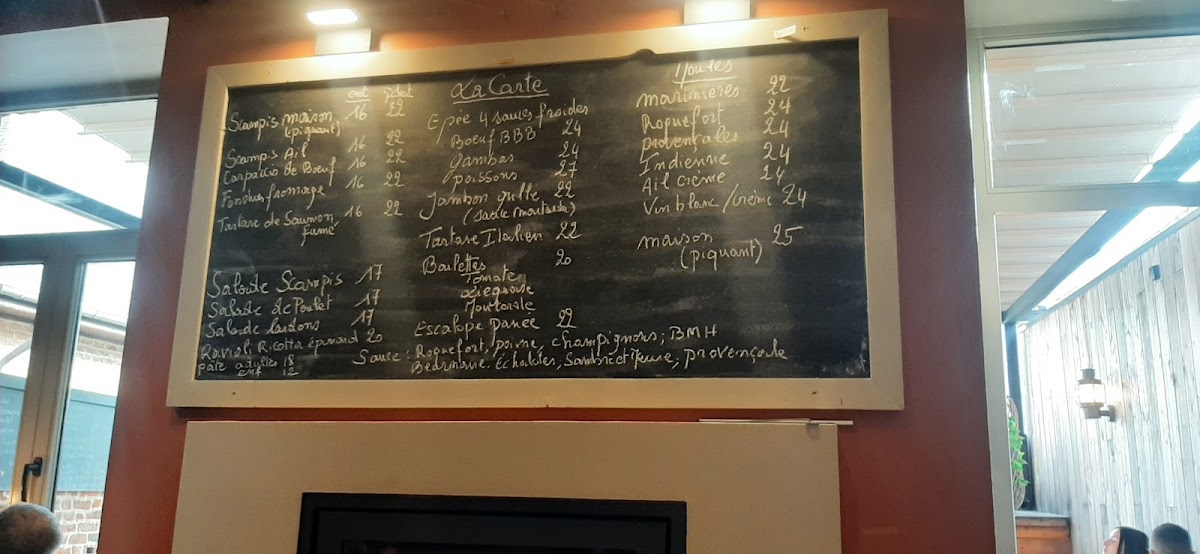 ent plat
Scampis maison 16 22
(piquant)
Scampis Ail 16 22
Carpaccio de Boeuf 16 22
Fondus fromage 16 22
Tartare de Saumon 16 22
fumé
Salade Scampis 17
Salade de Poulet 17
Salade lardons 17
Ravioli Ricotta épinard 20
pâte adultes 18
enf 12
La Carte
Epée 4 sauces froides
Boeuf BBB 24
gambas 24
poissons 27
Jambon grillé 22
(sauce moutarde)
Tartare Italien 22
Boulettes 20
Tomate
Liégeoise
Moutarde
Escalope panée 22
Sauce: Roquefort, poivre, champignons; BMH
Béarnaise, Echalotes, provençale
Moules
marinieres 22
Roquefort 24
provençales 24
Indienne 24
Ail crème 24
Vin blanc/crème 24
maison 25
(piquant)